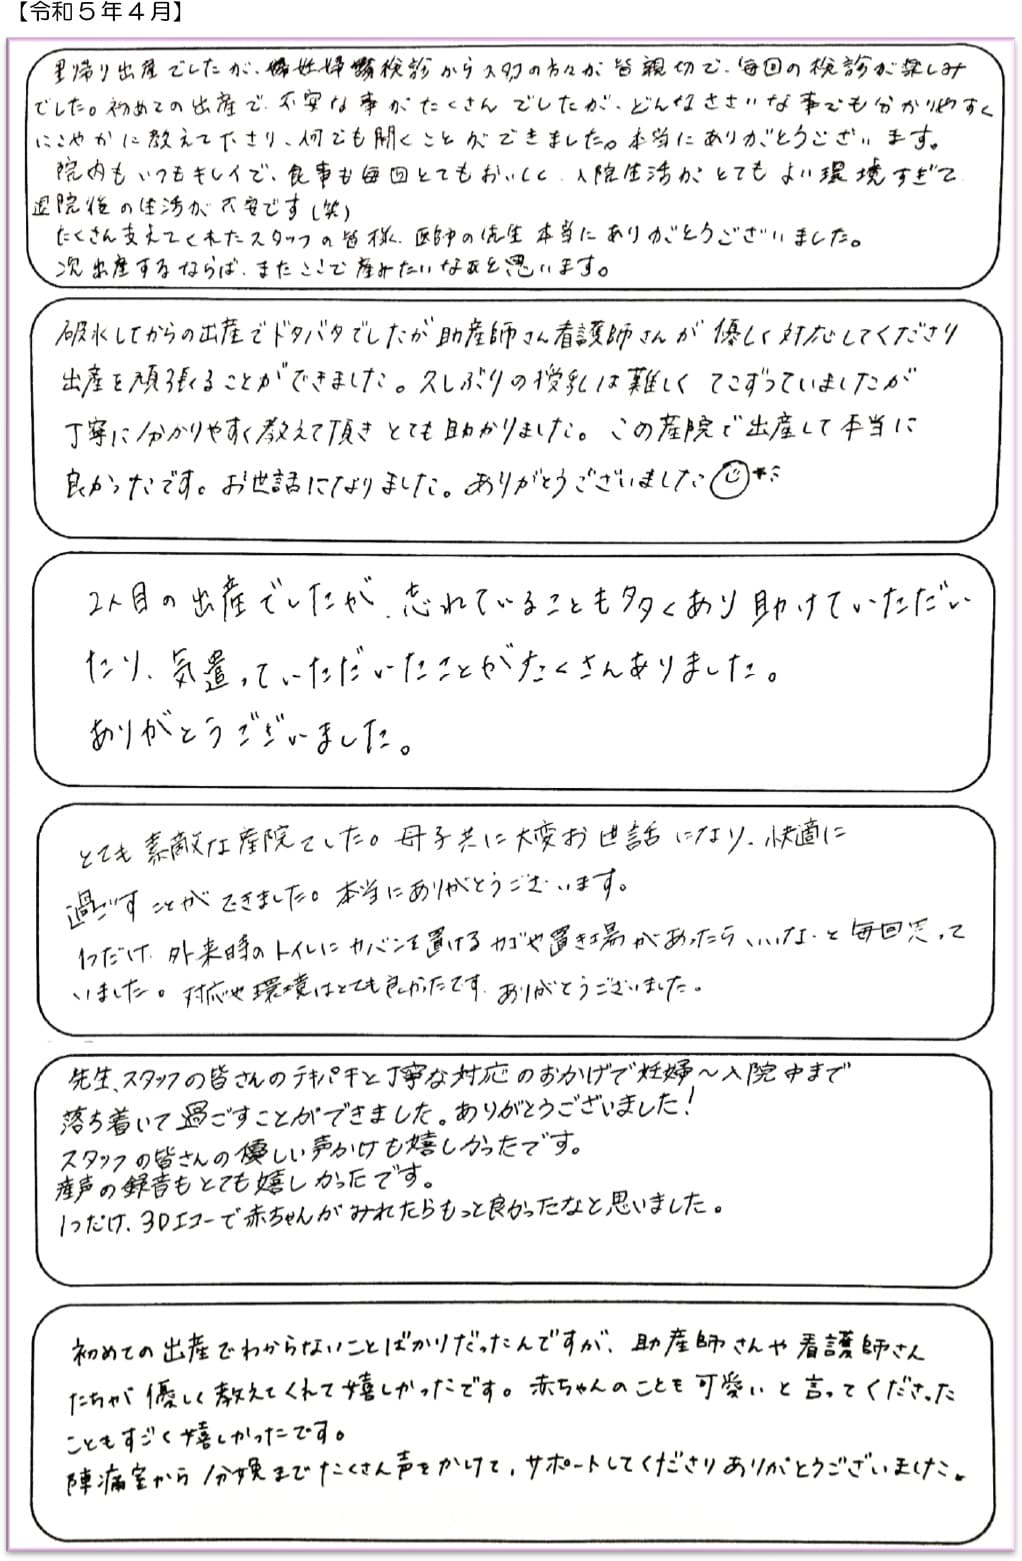 【令和５年４月】
里帰り出産でしたが、妊婦検診からスタッフの方々が皆親切で、毎回の検診が楽しみ
でした。初めての出産で、不安な事がたくさんでしたが、どんなささいな事でも分かりやすく
にこやかに教えて下さり、何でも聞くことができました。本当にありがとうございます。
院内もいつもキレイで、食事も毎回とてもおいしく、入院生活がとてもよい環境すぎて、
退院後の生活が不安です(笑)
たくさん支えてくれたスタッフの皆様、医師の先生本当にありがとうございました。
次出産するならば、またここで産みたいなぁと思います。
破水してからの出産でドタバタでしたが助産師さん看護師さんが優しく対応してくださり
出産を頑張ることができました。久しぶりの授乳は難しくてこずっていましたが
丁寧に分かりやすく教えて頂きとても助かりました。この産院で出産して本当に
良かったです。お世話になりました。ありがとうございました
2人目の出産でしたが、忘れていることも多くあり助けていただい
たり、気遣っていただいたことがたくさんありました。
ありがとうございました。
とても素敵な産院でした。母子共に大変お世話になり、快適に
過ごすことができました。本当にありがとうございます。
1つだけ、外来時のトイレにカバンを置けるカゴや置き場があったらいいな、と毎回思って
いました。対応や環境はとても良かったです。ありがとうございました。
先生、スタッフの皆さんのテキパキと丁寧な対応のおかげで妊婦〜入院中まで
落ち着いて過ごすことができました。ありがとうございました！
スタッフの皆さんの優しい声かけも嬉しかったです。
産声の録音もとても嬉しかったです。
1つだけ、3Dエコーで赤ちゃんがみれたらもっと良かったなと思いました。
初めての出産でわからないことばかりだったんですが、助産師さんや看護師さん
たちが優しく教えてくれて嬉しかったです。赤ちゃんのことも可愛いと言ってくださった
こともすごく嬉しかったです。
陣痛室から分娩までたくさん声をかけて、サポートしてくださりありがとうございました。